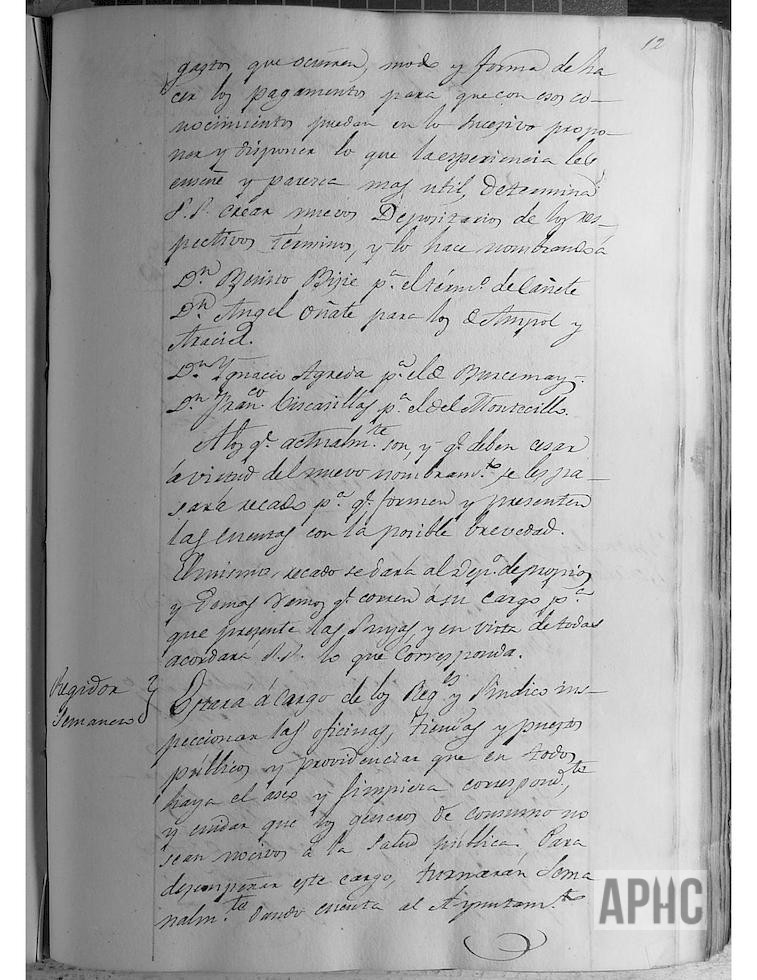 12
gastos que ocurren, modo y forma de ha
cer los pagamentos para que con esos co-
nocimientos puedan en lo sucesivo propo-
ner y disponer lo que la esperiencia les
enseñe y paresca mas util, determina
S.S. crear nuevos Depositarios de los res-
pectivos términos, y lo hace nombrando á
Dn. Benito pa. el térmo. de Cañete
Dn. Angel Oñate para los de Ampol y
Dn. Ygnacio Agreda pa. el de Burcemay.
Dn. Franco. Viscasillas pa. el del Montecillo.
A los qe. actualmte. son, y qe. deben cesar
á virtud del nuevo nombramto. se les pa-
sará recado pa. qe. formen y presenten
las cuentas con la posible brevedad.
El mismo recado se dará al Depo. de propios
y demas ramos qe. corren á su cargo pa.
que presente las suyas, y en vista de todas
acordará S.S. lo que corresponda.
Regidor
Semanero
Estará á cargo de los Regs. y Sindico ins-
peccionar las oficinas, tiendas y puestos
públicos y providenciar que en todos
haya el aseo y limpieza correspondte.,
y cuidar que los géneros de consumo no
sean nocivos á la salud pública. Para
desempeñar este cargo, turnarán Sema
nalmte. dando cuenta al Ayuntamto.
APHC